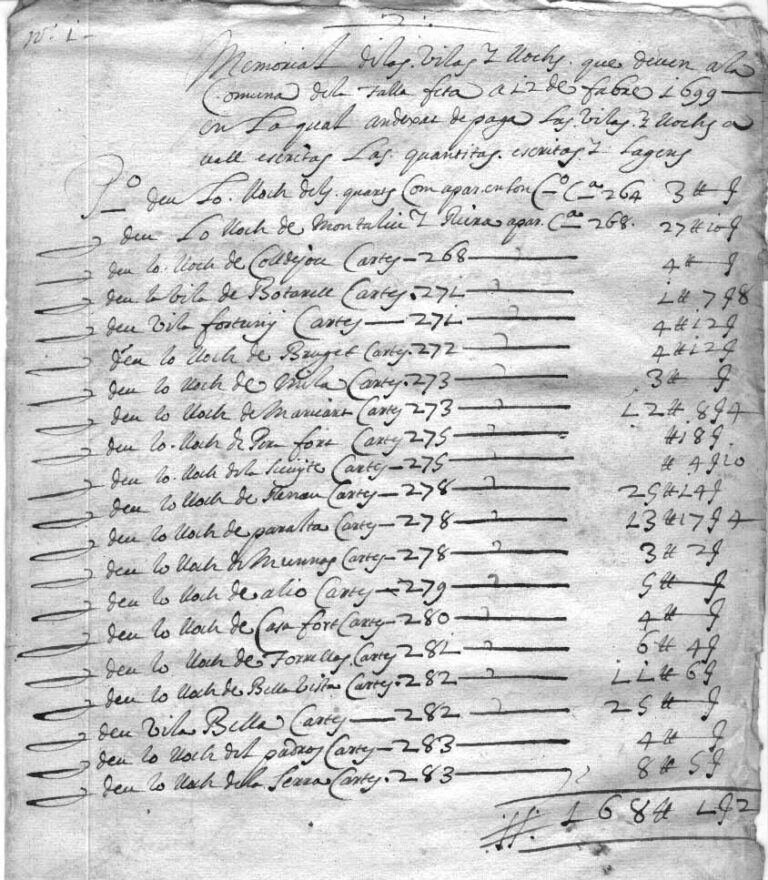 nº 1
Memorial dilas vilas y llochs que deuen a la
Comuna dela Talla feta a 12 de fabre 1699
en La qual andexat de paga Las vilas y llochs a
uall escritas Las quantitas escritas y
Pº deu Lo lloch dels quarts Com apar en lo 264 3 ₶ ʃ
deu Lo lloch de Montaliu y Riera apar Cª 268 27 ₶ 10 ʃ
deu lo lloch de Colldejou Cartes 268 4 ₶ ʃ
deu la vila de Botarell Cartes 271 1 ₶ 7 ʃ 8
deu vila fortuny Cartes 271 4 ₶ 12 ʃ
deu lo lloch de Bruget Cartes 272 4 ₶ 12 ʃ
deu lo lloch de Mila Cartes 273 3 ₶ ʃ
deu lo lloch de Maricart Cartes 273 12 ₶ 8 ʃ 4
deu lo lloch de Pera fort Cartes 275 ₶ 18 ʃ
deu lo lloch dela Cartes 275 ₶ 4 ʃ 10
deu lo lloch de Renau Cartes 278 25 ₶ 14 ʃ
deu lo lloch de paralta Cartes 278 13 ₶ 17 ʃ 4
deu lo lloch de Cartes 278 3 ₶ 2 ʃ
deu lo lloch de alio Cartes 279 5 ₶ ʃ
deu lo lloch de Casafort Cartes 280 4 ₶ ʃ
deu lo lloch de Torrellas Cartes 281 6 ₶ 4 ʃ
deu lo lloch de Bella Vista Cartes 282 11 ₶ 6 ʃ
deu Vila Bella Cartes 282 25 ₶ ʃ
deu lo lloch del padros Cartes 283 4 ₶ ʃ
deu lo lloch dela Serra Cartes 283 8 ₶ 5 ʃ
168 ₶ 1 ʃ 2